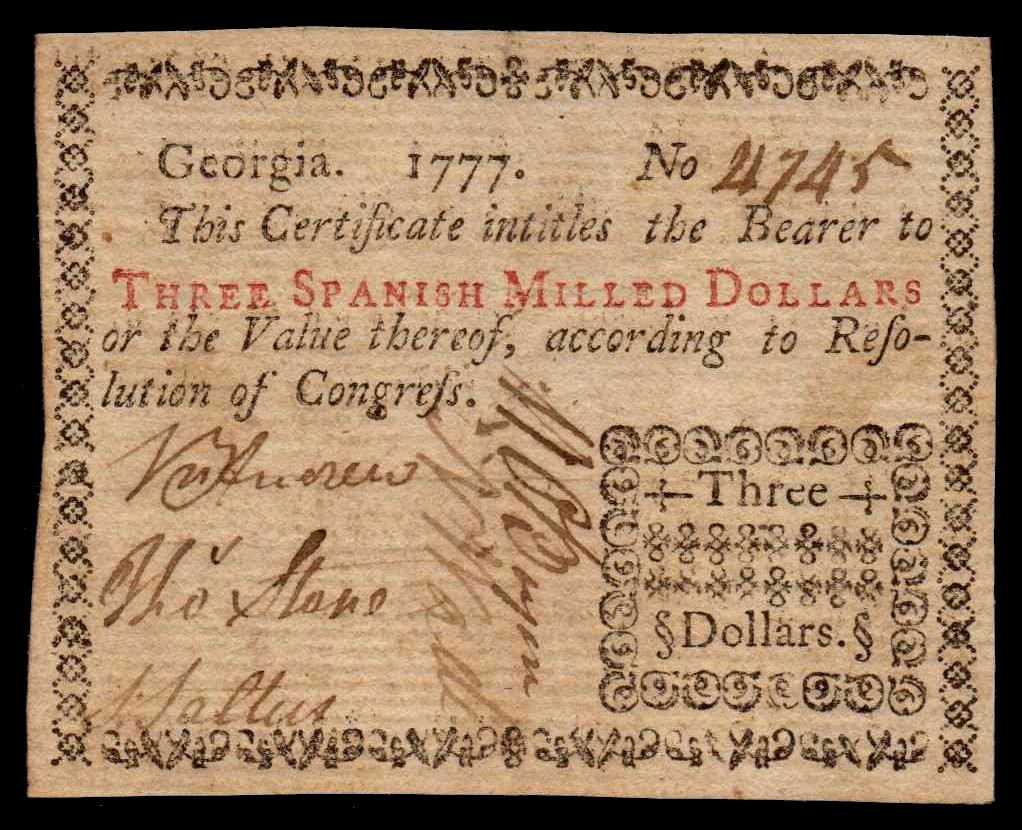 Georgia. 1777. No 4745
This Certificate intitles the Bearer to
THREE SPANISH MILLED DOLLARS
or the Value thereof, according to Reſo-
lution of Congreſs.
Wm Andrew
Thos Stone
Saltus
Three
§Dollars.§